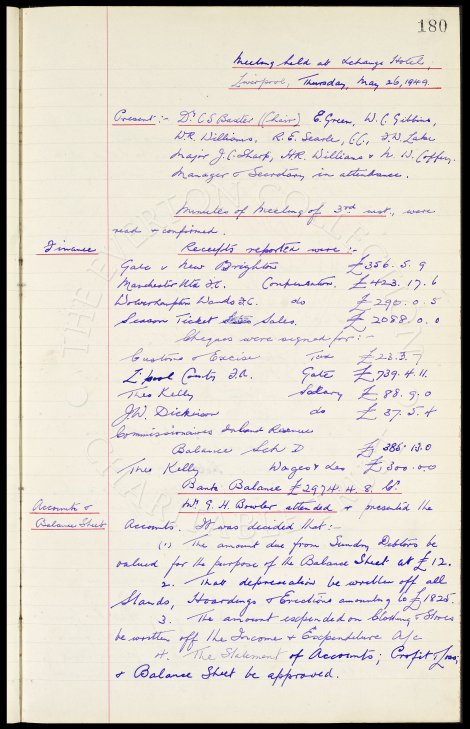 180
Meeting held at Exchange Hotel,
Liverpool, Thursday, May 26, 1949.
Present :- Dr C.S Baxter (Chair) E. Green, W.C. Gibbins,
W.R. Williams, R.E. Searle, C.C., F.W. Lake
Major J.C. Sharp, H.R. Williams & N. W. Coffey.
Manager & Secretary in attendance.
Minutes of Meeting of 3rd inst., were
read & confirmed.
Finance
Receipts reported were :-
Gate v New Brighton £356. 5. 9
Manchester Utd F.C. Compensation. £423. 17. 6
Wolverhampton Wands F.C. do £290. 0. 5
Season Ticket Sales. £2088. 0. 0
Cheques were signed for :-
Customs & Excise Tax £23. 3. 7
L'pool County F.A. Gate £739. 4. 11.
Theo Kelly Salary £88. 9. 0
J.W. Dickinson do £37. 5. 4
Commissionaires Inland Revenue
Balance Sch D £386. 13. 0
Theo Kelly Wages & £300. 0. 0
Bank Balance £2974. 4. 8.
Accounts &
Balance Sheet
Mr G. H. Bowler attended & presented the
Accounts. It was decided that :-
(1) The amount due from Sundry Debtors be
valued for the purpose of the Balance Sheet at £12.
2. That depreciation be written off all
Stands, Hoardings & Erections amounting to £1825.
3. The amount expended on Clothing & Stores
be written off the Income & Expenditure A/c
4. The Statement of Accounts; Profit & Loss;
& Balance Sheet be approved.
THE EVERTON COLLECTION
CHARITABLE